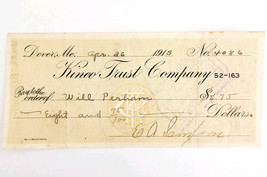 Dover, Mo. Apr. 26 1913 No. 4086
Kinco Trust Company 52-163
Pay to the order of Will Perham $8.75
Eight and 75/100 Dollars.
E A